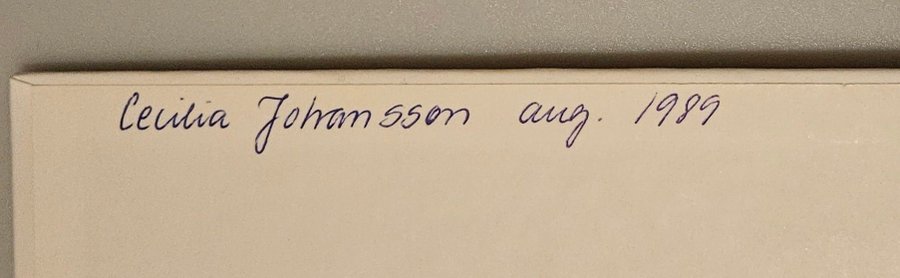 Cecilia Johansson aug. 1989